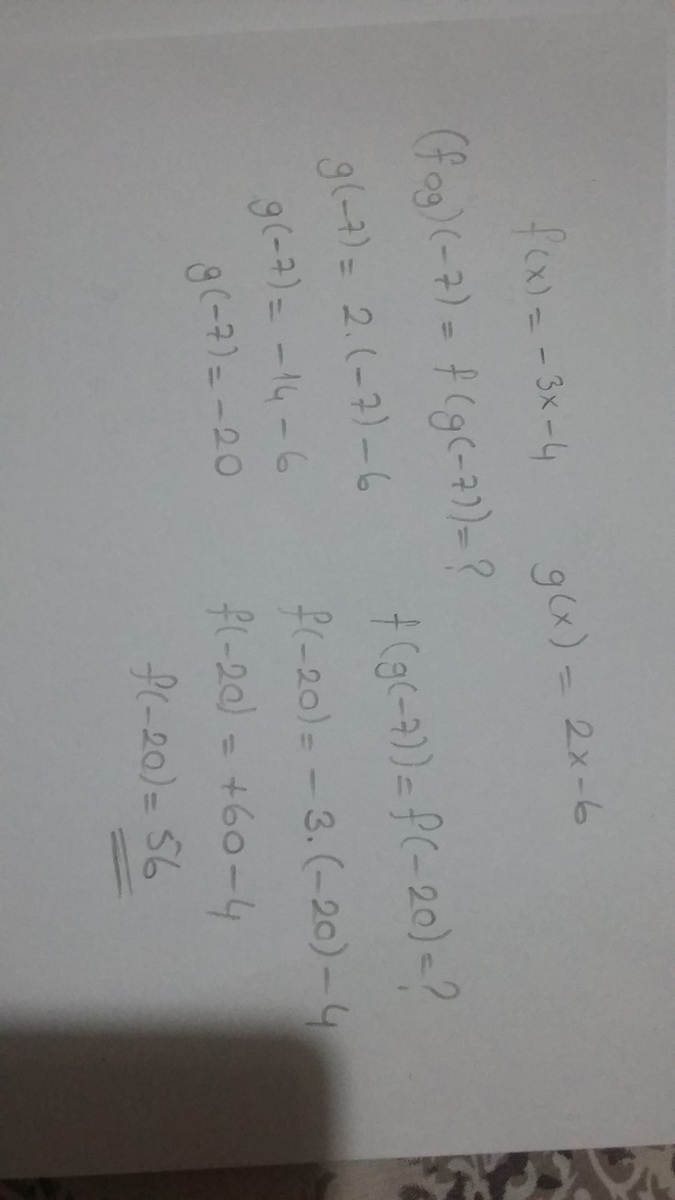 f(x) = -3x-4 g(x) = 2x-6
(fog)(-7) = f(g(-7))=?
g(-7) = 2.(-7)-6
g(-7) = -14-6
g(-7) = -20
f(g(-7)) = f(-20)=?
f(-20) = -3.(-20)-4
f(-20) = +60-4
f(-20) = 56